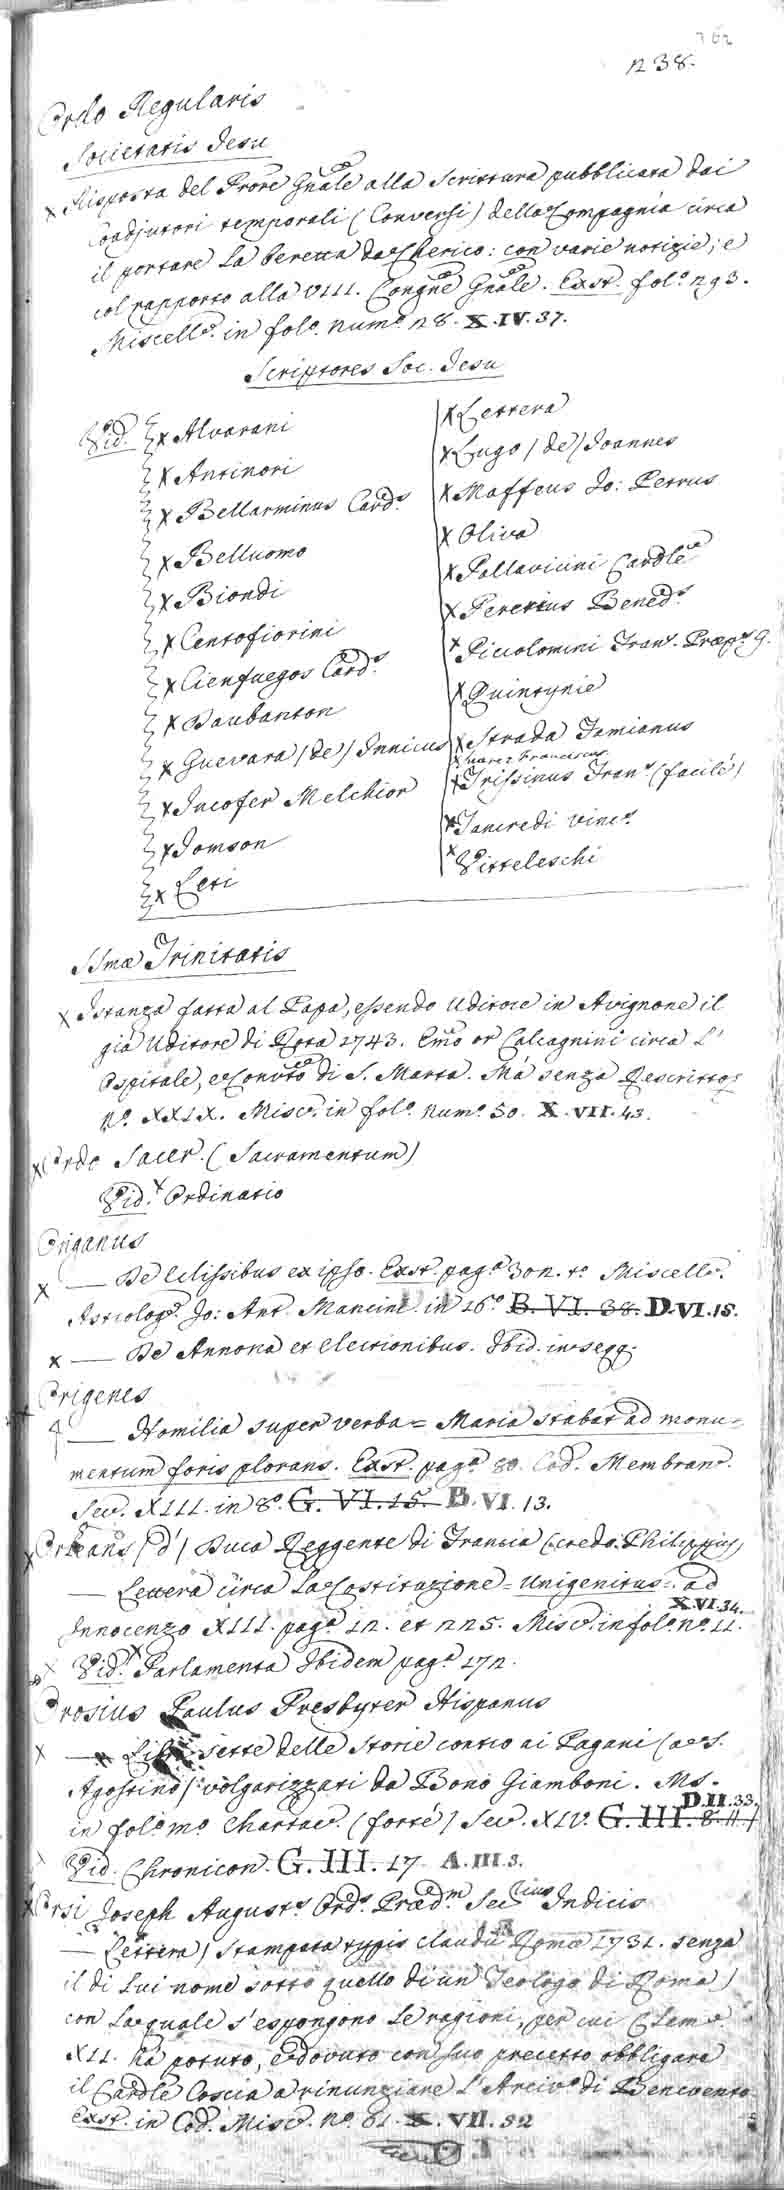 238.
Ordo Regularis
Societatis Jesu
Risposta del Prore Gnãle alla Scrittura pubblicata dai
Coadjutori temporali (Conversi) della Compagnia circa
il portare la beretta da Cherico: con varie notizie; e
col rapporto alla VIII. Congne Gnãle. Exst. folo. 293.
Miscell. in folo. numo. 28. X.IV.37.
Scriptores Soc. Jesu
Vid.
Alvarani
Antinori
Bellarminus Cards.
Belluomo
Biondi
Centofiorini
Cienfuegos Cards.
Daubanton
Guevara (de) Innicus
Incofer Melchior
Jomson
Leti
Lettera
Lugo (de) Joannes
Maffeus Jo: Petrus
Oliva
Pallavicini Cardle
Pererius Beneds.
Piccolomini Frans. Præps. G.
Quintynie
Strada Famianus
Suarez Franciscus
Trissinus Frans. (facilé)
Tancredi Vincs.
Vitteleschi
SSmæ Trinitatis
Istanza fatta al Papa, essendo Uditore in Avignone il
già Uditore di Rota 1743. Emo or Calcagnini circa l'
Ospitale, e Convto di S. Marta. Má senza Rescritto:
no. XXIX. Misc. in folo. numo. 50. X.VII.43.
Ordo Sacer. (Sacramentum)
Vid. Ordinatio
Origanus
— De Eclissibus ex ipso. Exst. paga. 302. to. Miscell.
Astrolog. Jo: Ant. Mancini in 16o. B.VI.38. D.VI.15.
— De Annona et electionibus. Ibid. in segg.
Origenes
— Homilia super verba = Maria stabat ad monu=
mentum foris plorans. Exst. paga. 80. Cod. Membran.
Sec. XIII. in 8o. G.VI.15. B.VI.13.
Orleans (d') Duca Reggente di Francia (credo: Philippus)
— Lettera circa la Costituzione = Unigenitus = ad
X.VI.34.
Innocenzo XIII. paga. 12. et 225. Misc. in folo. no. 11.
Vid. Parlamenta Ibidem paga. 172.
Orosius Paulus Presbyter Hispanus
— Libri sette delle Storie contro ai Pagani (a S.
Agostino) volgarizzati da Bono Giamboni. Ms.
D.II.33.
in folo. mo. Chartac. (forté) Sec. XIV. G.III.
Vid. Chronicon. G.III.17 A.III.3.
Orsi Joseph Augusts. Ords. Prædm. Secrius Indicis
— Lettera (stampata typis Claudii Romæ 1731. senza
il di lui nome sotto quello di un Teologo di Roma)
con la quale s'espongono le ragioni, per cui Clem.
XII. ha potuto, e dovuto con suo precetto obbligare
il Cardle Coscia a rinunziare l'Arcivo. di Benevento
Exst. in Cod. Misc. no. 81. X.VII.52